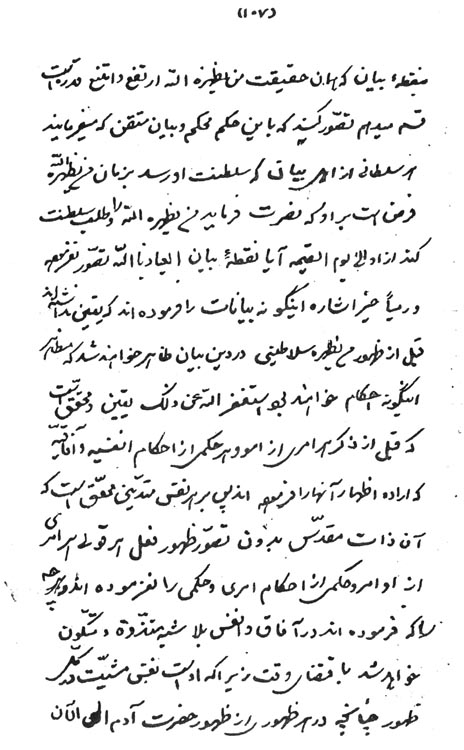 (۱۰۷)
بنقطهٔ بیان که بهمان حقیقت من یظهره الله ارتفع و امتنع قدره است
قسم میدهم تصور کنید که باین حکم محکم و بیان متقن که میفرمایند
هر سلطانی از اهل بیان که سلطنت او رسد بزمان من یظهره الله
فرض است بر او که نصرت فرماید من یظهره الله را و طلب سلطنت
کند از او الی یوم القیمه آیا نقطهٔ بیان العیاذ بالله تصور نفرموده
و رمیاً خیر اشاره اینگونه بیانات را فرموده‌اند که یقین نداشته‌اند
قبل از ظهور من یظهره سلاطینی در دین بیان ظاهر خواهند شد که مظاهر
اینگونه احکام خواهند بود استغفر الله عن ذلک یقین و محقق است
که قبل از ذکر هر امری از امور و هر حکمی از احکام انفسیه و آفاقیه
که اراده اظهار آنها را فرموده‌اند پس بر هر نفس متدینی محقق است که
آن ذات مقدس بدون تصور ظهور فعل هر قولی هر امری
از اوامر و حکمی از احکام امری و حکمی را نفرموده اند و هرچه
را که فرموده اند در آفاق و انفس بلا شبهه متذوت و متکون
خواهد شد باقتضای وقت زیرا که اوست نفس مشیّت در کل
ظهور چنانچه در هر ظهوری از ظهور حضرت آدم الی الآن